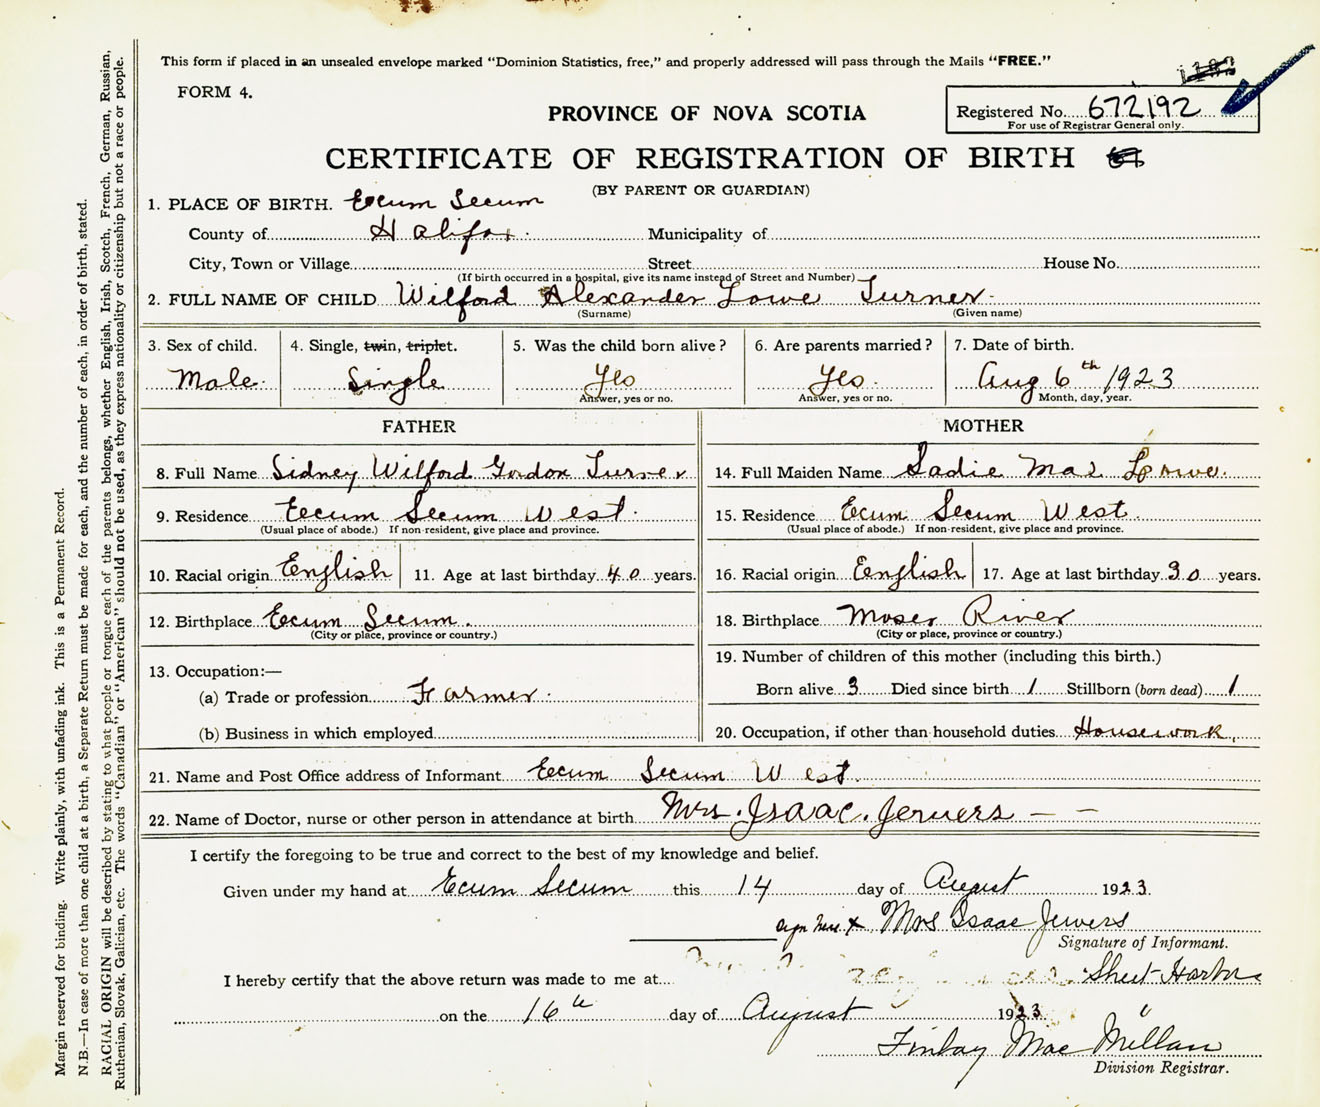 This form if placed in an unsealed envelope marked "Dominion Statistics, free," and properly addressed will pass through the Mails "FREE."
FORM 4.
PROVINCE OF NOVA SCOTIA
Registered No. 672192
For use of Registrar General only.
CERTIFICATE OF REGISTRATION OF BIRTH
(BY PARENT OR GUARDIAN)
1. PLACE OF BIRTH. Ecum Secum
County of Halifax. Municipality of
City, Town or Village Street House No.
(If birth occurred in a hospital, give its name instead of Street and Number)
2. FULL NAME OF CHILD Wilford Alexander Lowe Turner
(Surname) (Given name)
3. Sex of child. 4. Single, twin, triplet. 5. Was the child born alive? 6. Are parents married? 7. Date of birth.
Male Single Yes Yes Aug 6th 1923
Answer, yes or no. Answer, yes or no. Month, day, year.
FATHER MOTHER
8. Full Name Sidney Wilford Gordon Turner 14. Full Maiden Name Sadie Mae Lowe.
9. Residence Eecum Secum West. 15. Residence Ecum Secum West.
(Usual place of abode.) If non-resident, give place and province. (Usual place of abode.) If non-resident, give place and province.
10. Racial origin English 11. Age at last birthday 40 years. 16. Racial origin English 17. Age at last birthday 30 years.
12. Birthplace Ecum Secum. 18. Birthplace Moser River
(City or place, province or country.) (City or place, province or country.)
13. Occupation:— 19. Number of children of this mother (including this birth.)
(a) Trade or profession Farmer. Born alive 3 Died since birth 1 Stillborn (born dead) 1
(b) Business in which employed 20. Occupation, if other than household duties Housework.
21. Name and Post Office address of Informant Ecum Secum West.
22. Name of Doctor, nurse or other person in attendance at birth Mrs. Isaac. Jewers — —
I certify the foregoing to be true and correct to the best of my knowledge and belief.
Given under my hand at Ecum Secum this 14 day of August 1923.
sign here x Mrs Isaac Jewers
Signature of Informant.
I hereby certify that the above return was made to me at Sheet Harbor
on the 16th day of August 1923
Finlay MacMillan
Division Registrar.
Margin reserved for binding. Write plainly, with unfading ink. This is a Permanent Record.
N.B.—In case of more than one child at a birth, a Separate Return must be made for each, and the number of each, in order of birth, stated.
RACIAL ORIGIN will be described by stating to what people or tongue each of the parents belongs, whether English, Irish, Scotch, French, German, Russian,
Ruthenian, Slovak, Galician, etc. The words "Canadian" or "American" should not be used, as they express nationality or citizenship but not a race or people.